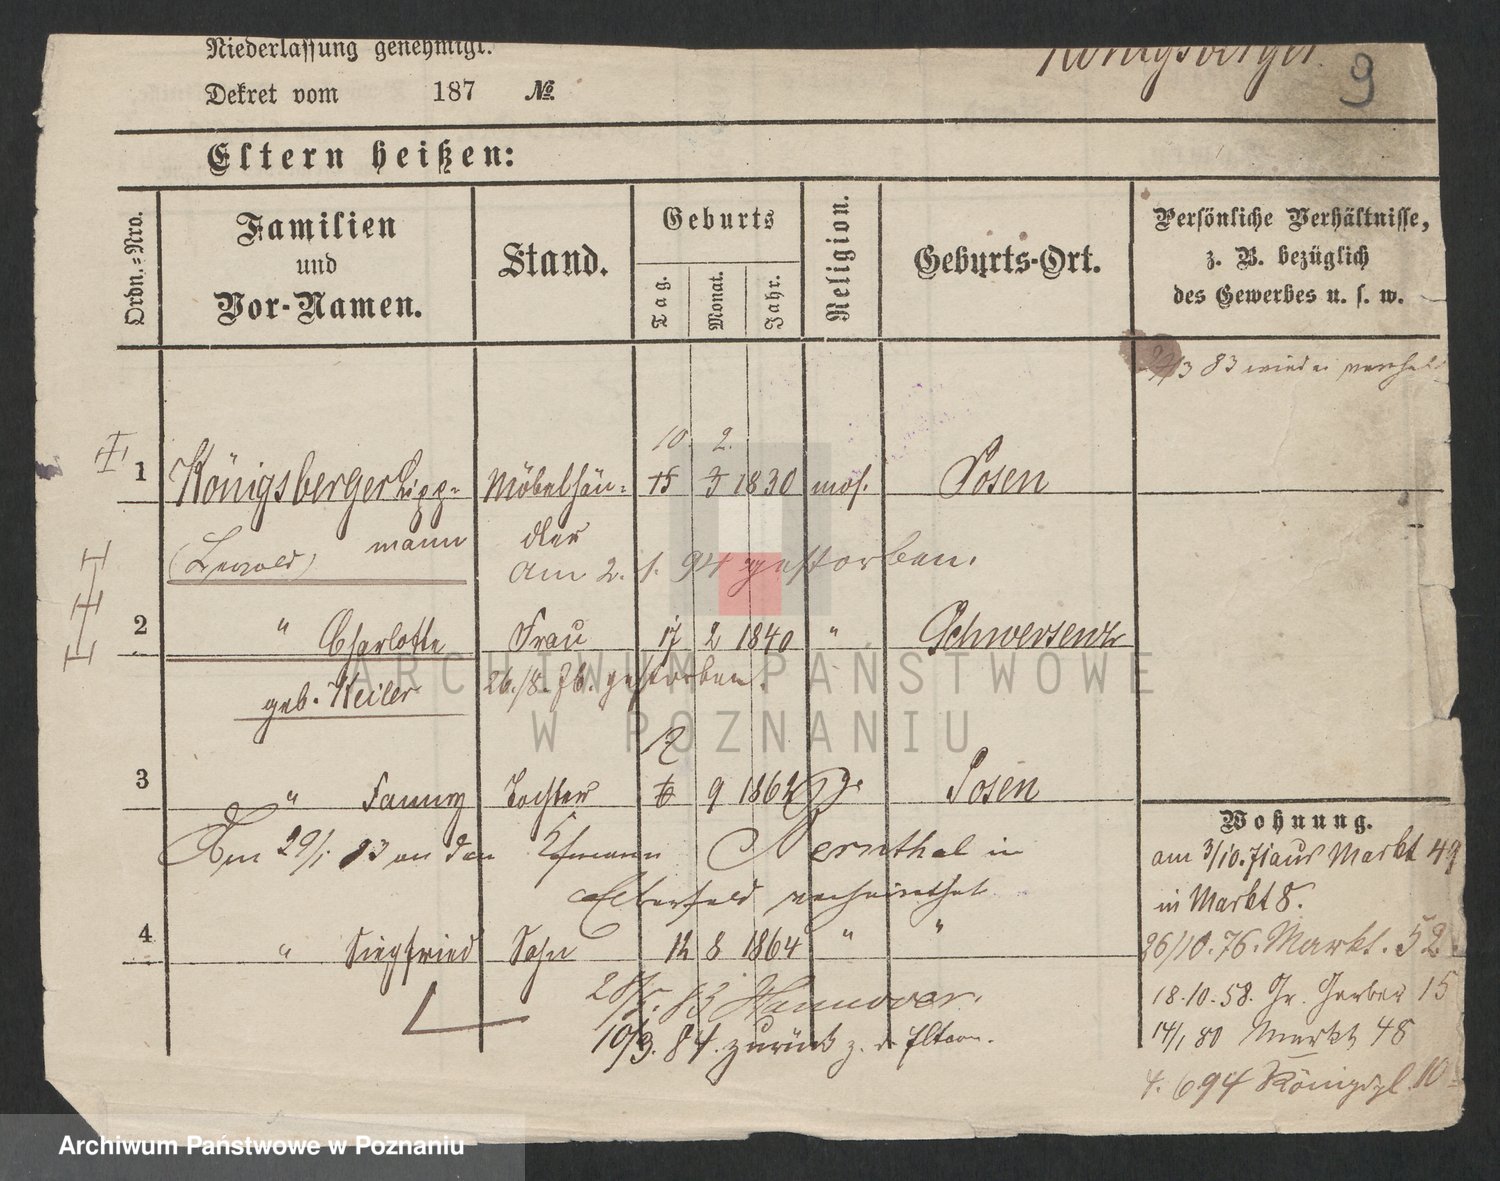 Niederlassung genehmigt.
Königsberger.
9
Dekret vom 187 №
Eltern heißen:
Ordn.=Nro.
Familien
und
Vor-Namen.
Stand.
Geburts
Tag.
Monat.
Jahr.
Religion.
Geburts-Ort.
Persönliche Verhältnisse,
z. B. bezüglich
des Gewerbes u. s. w.
27/3 83 wieder
10. 2.
1 Königsberger Lipp= Möbelhän= 15 3 1830 mos. Posen
mann dler
am 2. 1. 94 gestorben.
2 " Charlotte Frau 17 2 1840 " Schwersenz
geb. Keiler 26./8. 76. gestorben.
12
3 " Fanny Tochter 6 9 1862 Posen
Am 29/1 83 an den Kfmann Bernthal in
Elberfeld verheirathet
4 " Siegfried Sohn 12 8 1864 " "
83 Hannover.
10/3. 84. zurück z. d. Eltern.
Wohnung.
am 3/10. 71 aus Markt 49
in Markt 8.
26/10. 76. Markt. 52
18.10.58. Gr. Gerber 15
14/1 80 Markt 48
4. 6 94 Königspl. 10
ARCHIWUM PAŃSTWOWE
W POZNANIU
Archiwum Państwowe w Poznaniu